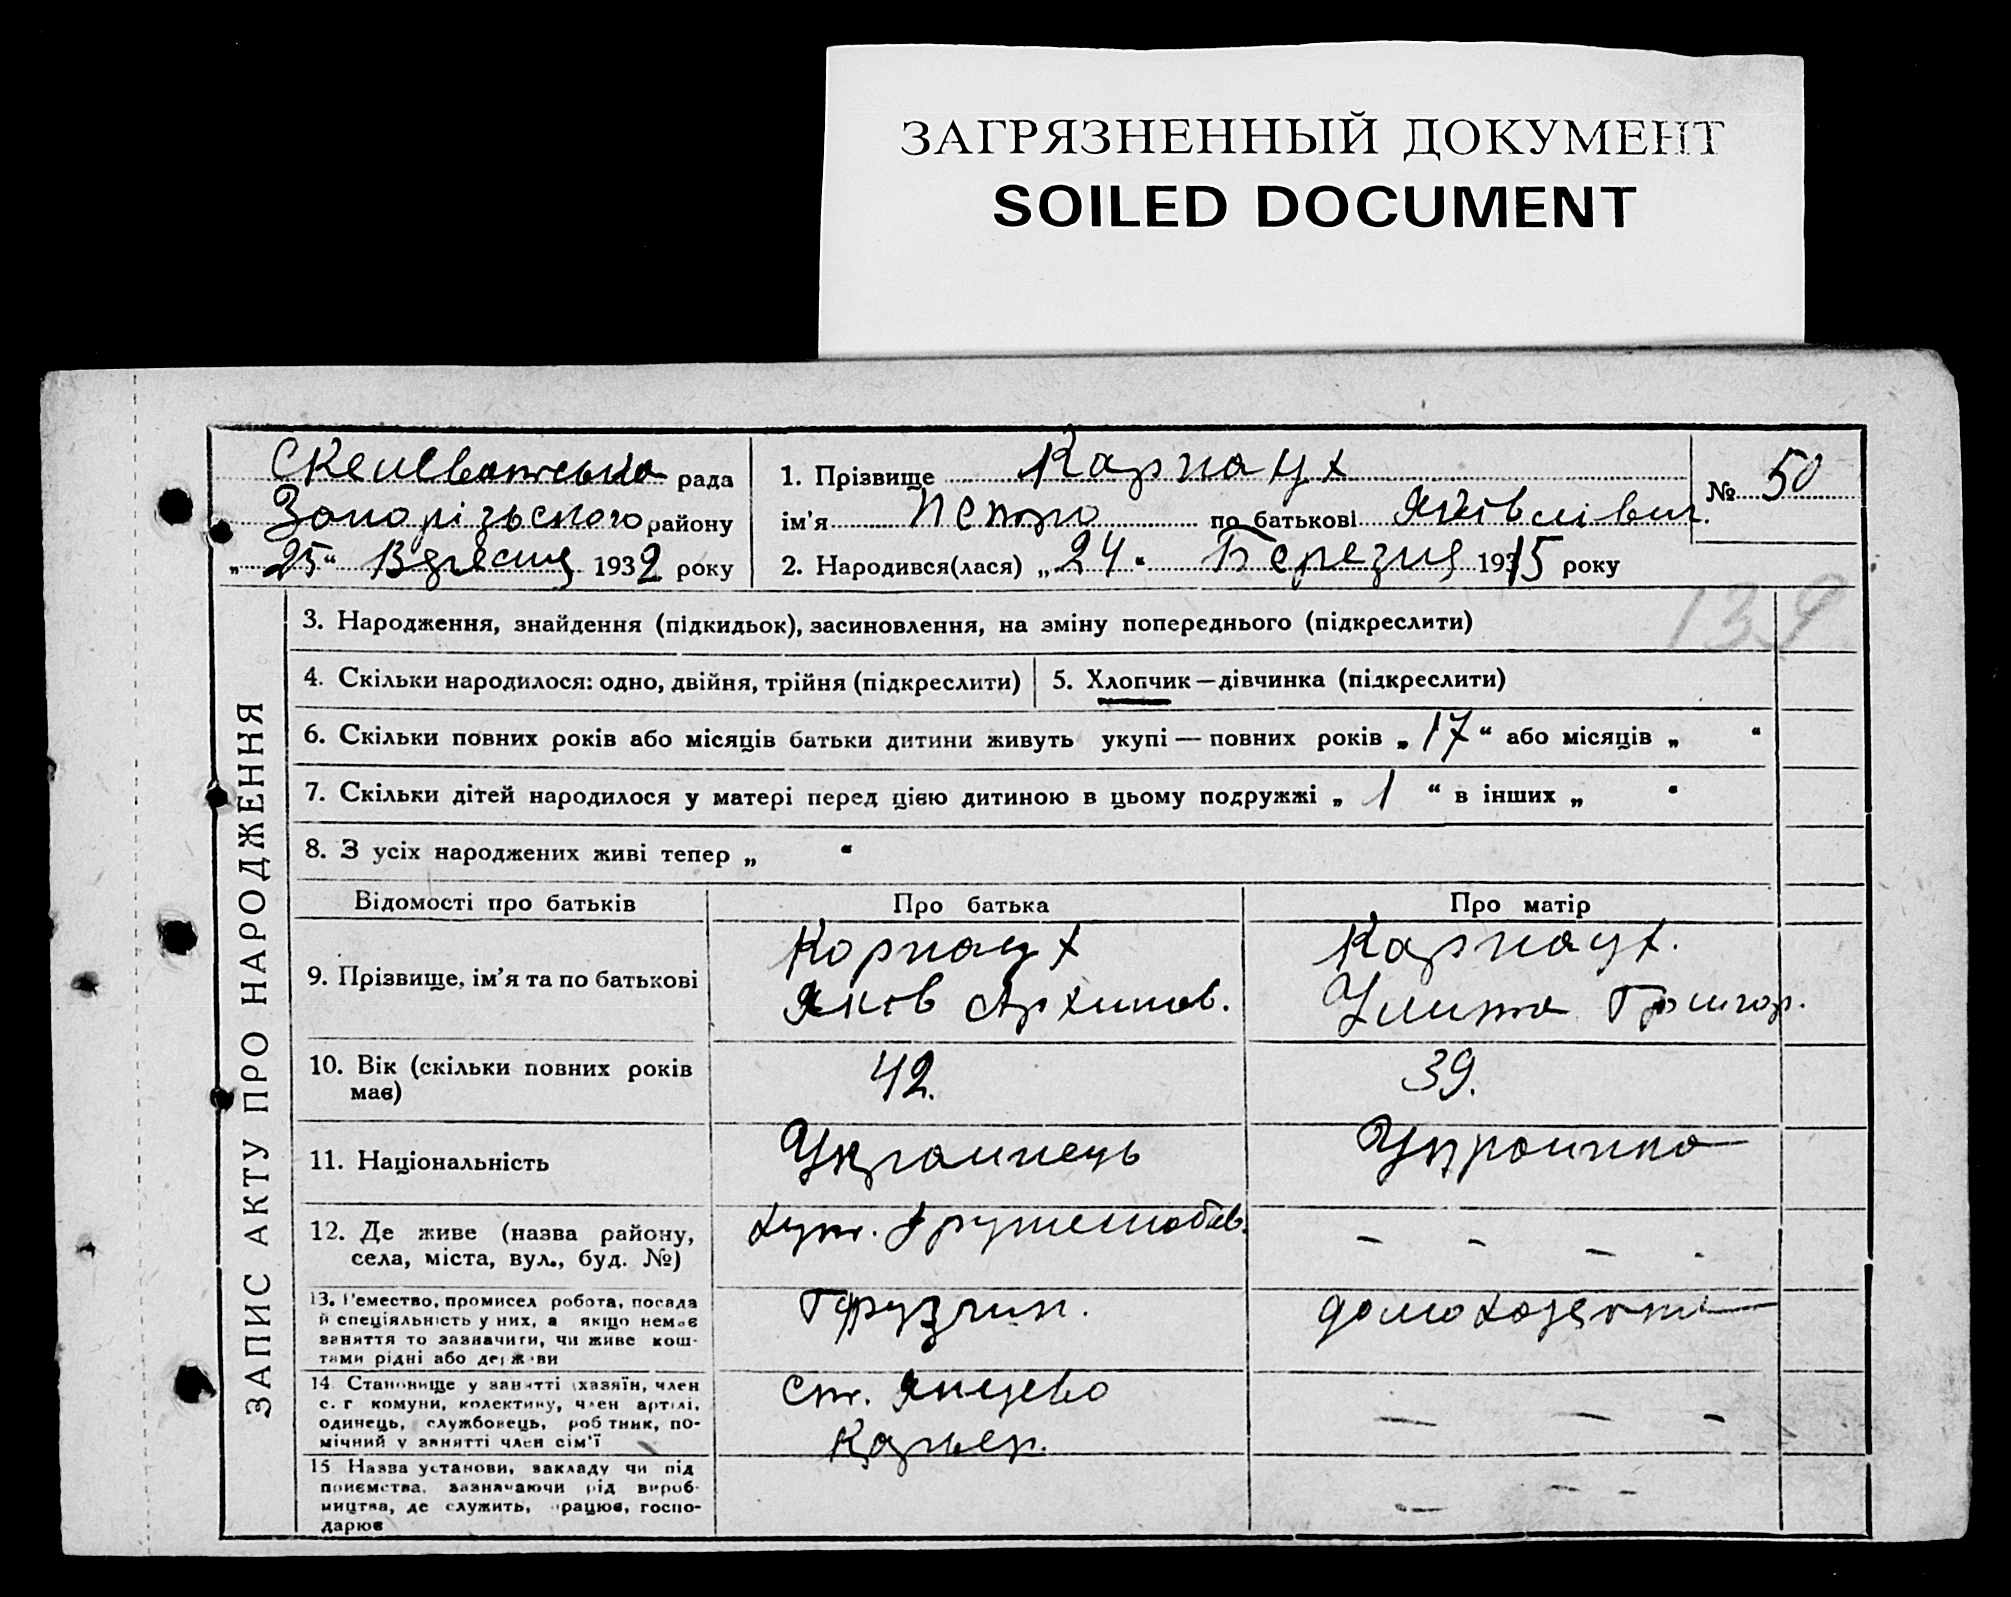 ЗАГРЯЗНЕННЫЙ ДОКУМЕНТ
SOILED DOCUMENT
Скелеватська рада
Запорізького району
„25“ Вересня 1932 року
1. Прізвище Карнаух
ім'я Петро по батькові Яківлівич.
2. Народився(лася) „24“ Березня 1915 року
№ 50
139
ЗАПИС АКТУ ПРО НАРОДЖЕННЯ
3. Народження, знайдення (підкидьок), засиновлення, на зміну попереднього (підкреслити)
4. Скільки народилося: одно, двійня, трійня (підкреслити)
5. Хлопчик — дівчинка (підкреслити)
6. Скільки повних років або місяців батьки дитини живуть укупі — повних років „17“ або місяців „ “
7. Скільки дітей народилося у матері перед цією дитиною в цьому подружжі „ 1 “ в інших „ “
8. З усіх народжених живі тепер „ “
Відомості про батьків Про батька Про матір
9. Прізвище, ім'я та по батькові
Корнаух
Яків Архипов.
Карнаух.
Улита Григор.
10. Вік (скільки повних років
має)
42.
39.
11. Національність
Українець
Українка
12. Де живе (назва району,
села, міста, вул., буд. №)
хут.
- - - .
13. Ремество, промисел робота, посада
й спеціяльність у них, а якщо немає
заняття то зазначити, чи живе кош-
тами рідні або держави
Грузчик.
домохозяйка
14. Становище у занятті (хазяїн, член
с. г комуни, колективу, член артілі,
одинець, службовець, робітник, по-
мічний у занятті член сім'ї
Ст. Янцево
Карьер.
— — -
15 Назва установи, закладу чи під
приємства, зазначаючи рід вироб-
ництва, де служить, працює, госпо-
дарює
— - -